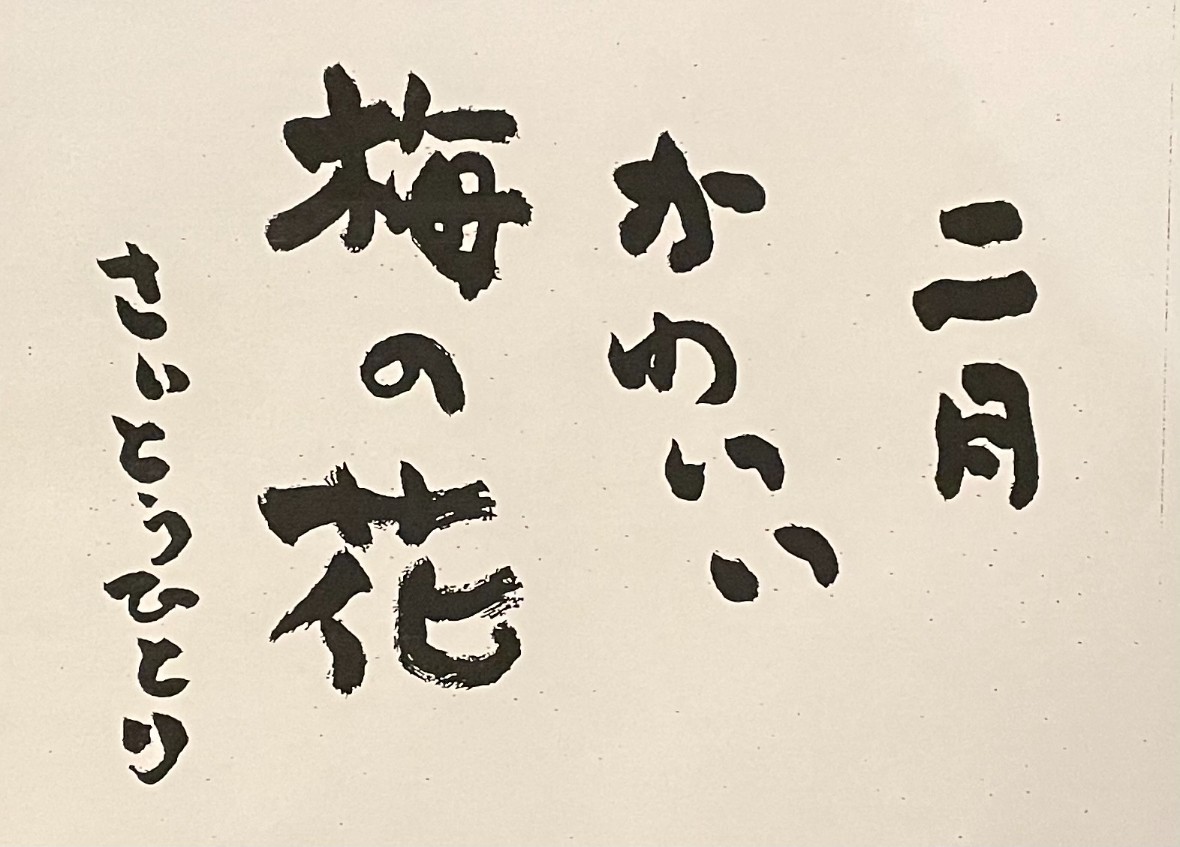 二月
かわいい
梅の花
さいとうひとり